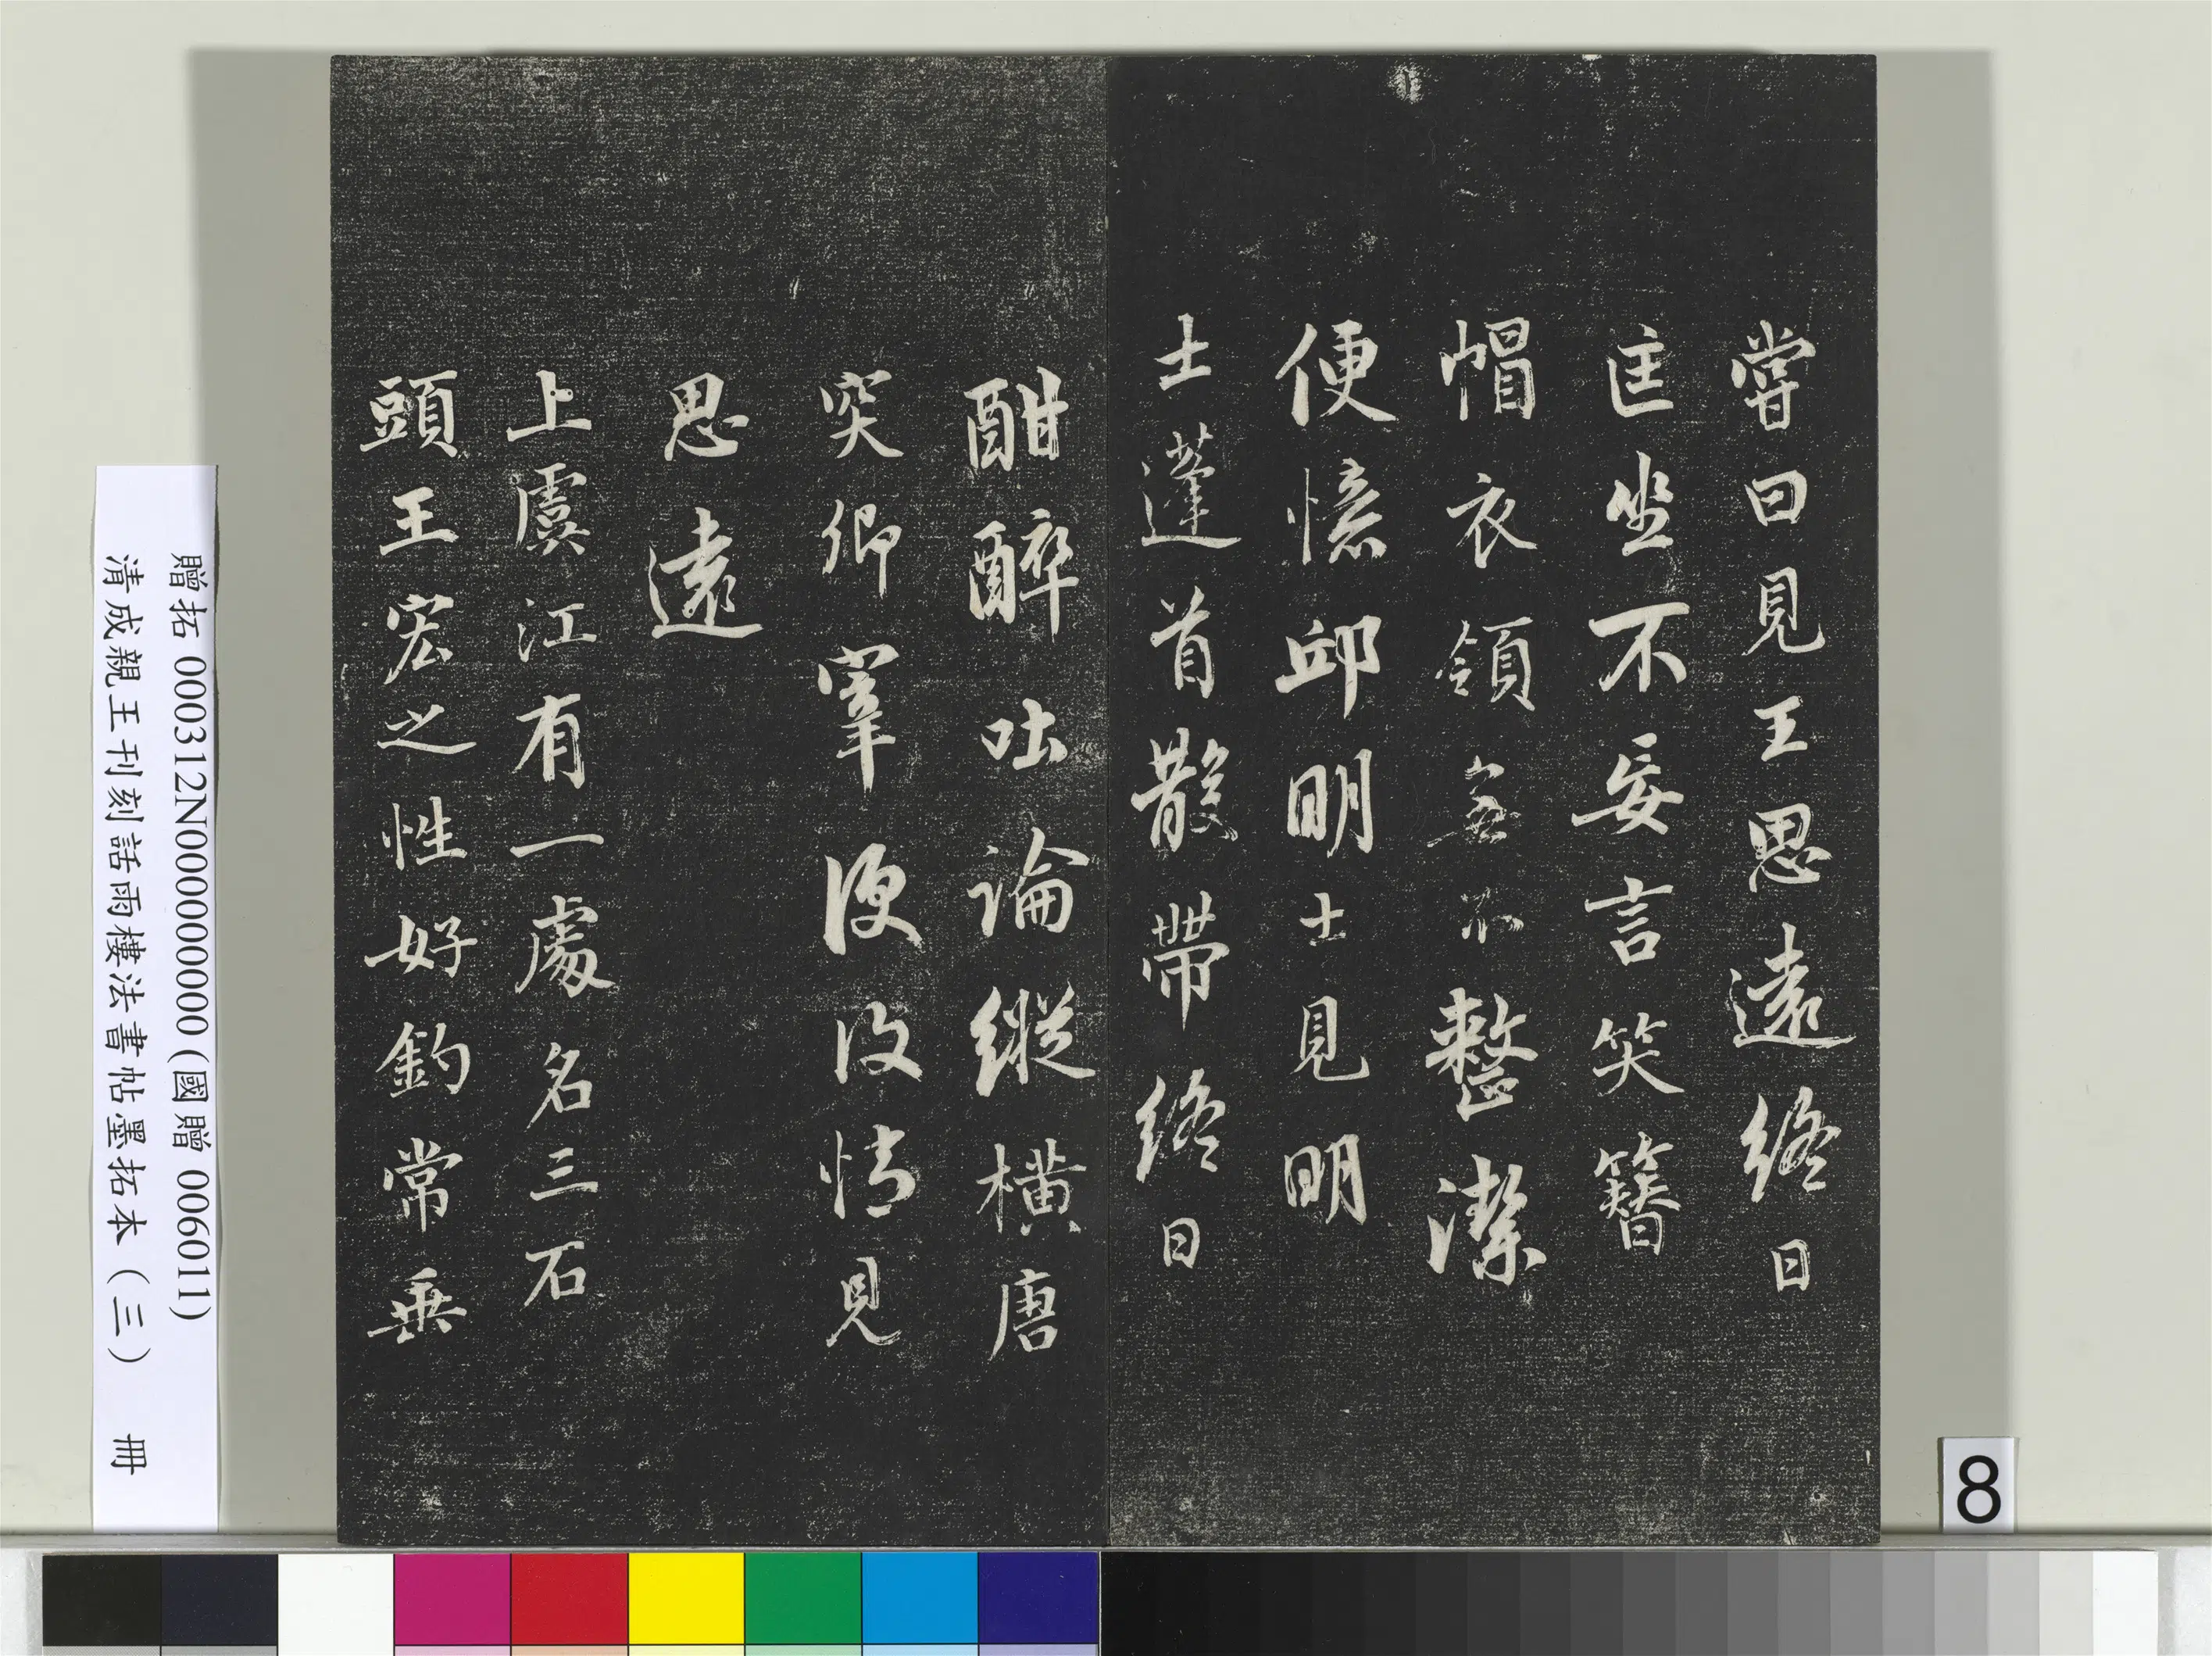 嘗曰見王思遠終日
匡坐不妄言笑簪
帽衣領無不整潔
便憶邱明士見明
士蓬首散帶終日
酣醉吐論縱横唐
突卿宰便復憶見
思遠
上虞江有一處名三石
頭王宏之性好釣常垂
贈拓 000312N000000000 (國贈 006011)
清成親王刊刻話雨樓法書帖墨拓本（三） 冊
8